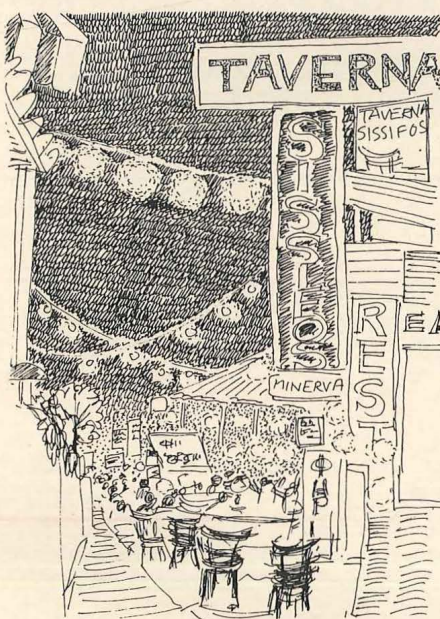 TAVERNA
TAVERNA
SISSIFOS
SISSIFOS
MINERVA
REST